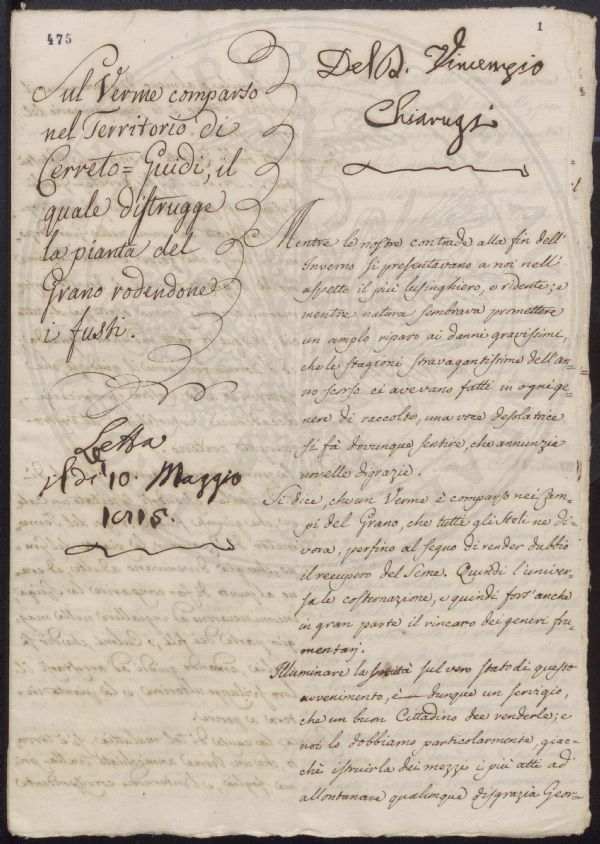 475
1
Sul Verme comparso
nel Territorio di
Cerreto=Guidi, il
quale distrugge
la pianta del
Grano rodendone
i fusti.
Letta
il dì 10. Maggio
1815.
Del D. Vincenzio
Chiarugi
Mentre le nostre contrade alla fin dell'
Inverno si presentavano a noi nell'
aspetto il più lusinghiero, e ridente; e
mentre natura sembrava promettere
un amplo riparo ai danni gravissimi,
che le stagioni stravagantissime dell'an-
no scorso ci avevano fatti in ogni ge-
nere di raccolto, una voce desolatrice
si fà dovunque sentire, che annunzia
novelle digrazie.
Si dice, che un Verme è comparso nei Cam-
pi del Grano, che tutti gli Steli ne di-
vora, perfino al segno di render dubbio
il recupero del Seme. Quindi l'univer-
sale costernazione, e quindi fors'anche
in gran parte il rincaro dei generi fru-
mentarj.
Illuminare la società sul vero stato di questo
avvenimento, è dunque un servigio,
che un buon Cittadino dee renderle; e
noi lo dobbiamo particolarmente, giac-
chè istruirla dei mezzi i più atti ad
allontanare qualunque disgrazia Geor-